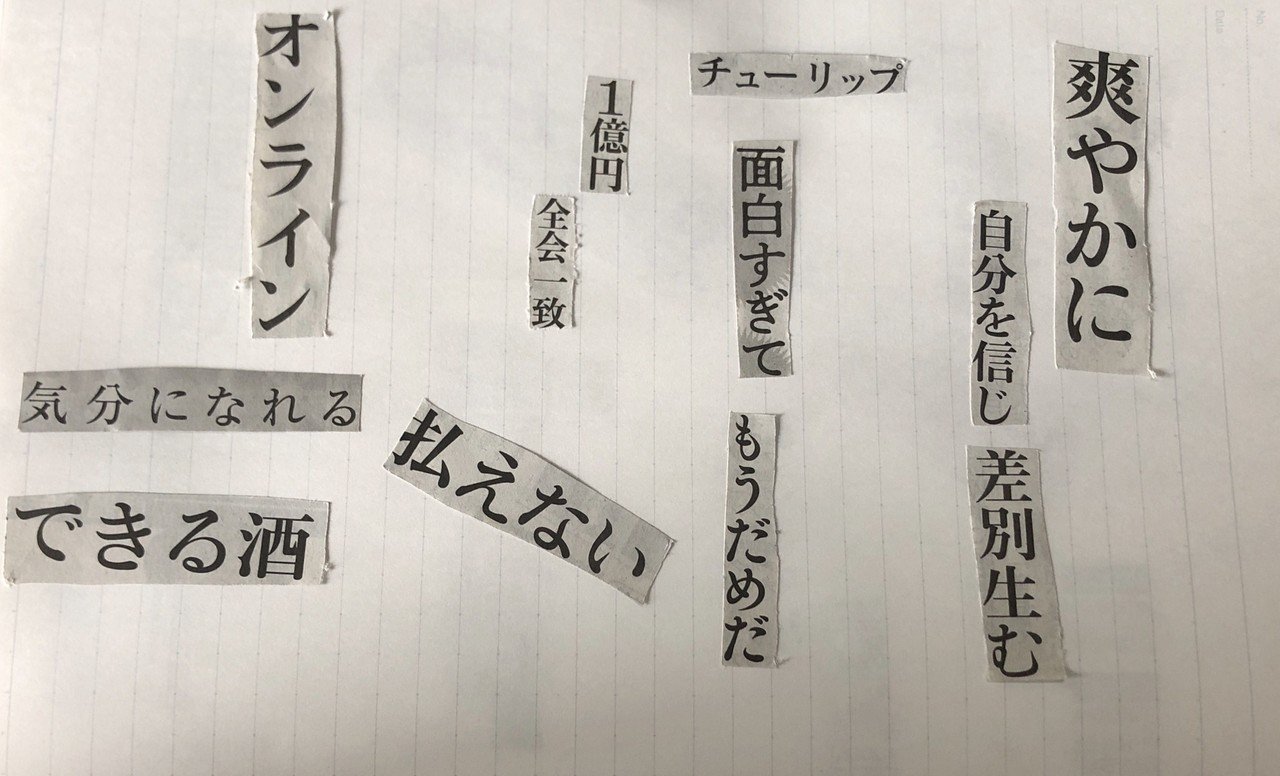 爽やかに
自分を信じ
差別生む
チューリップ
面白すぎて
もうだめだ
1億円
全会一致
払えない
オンライン
気分になれる
できる酒